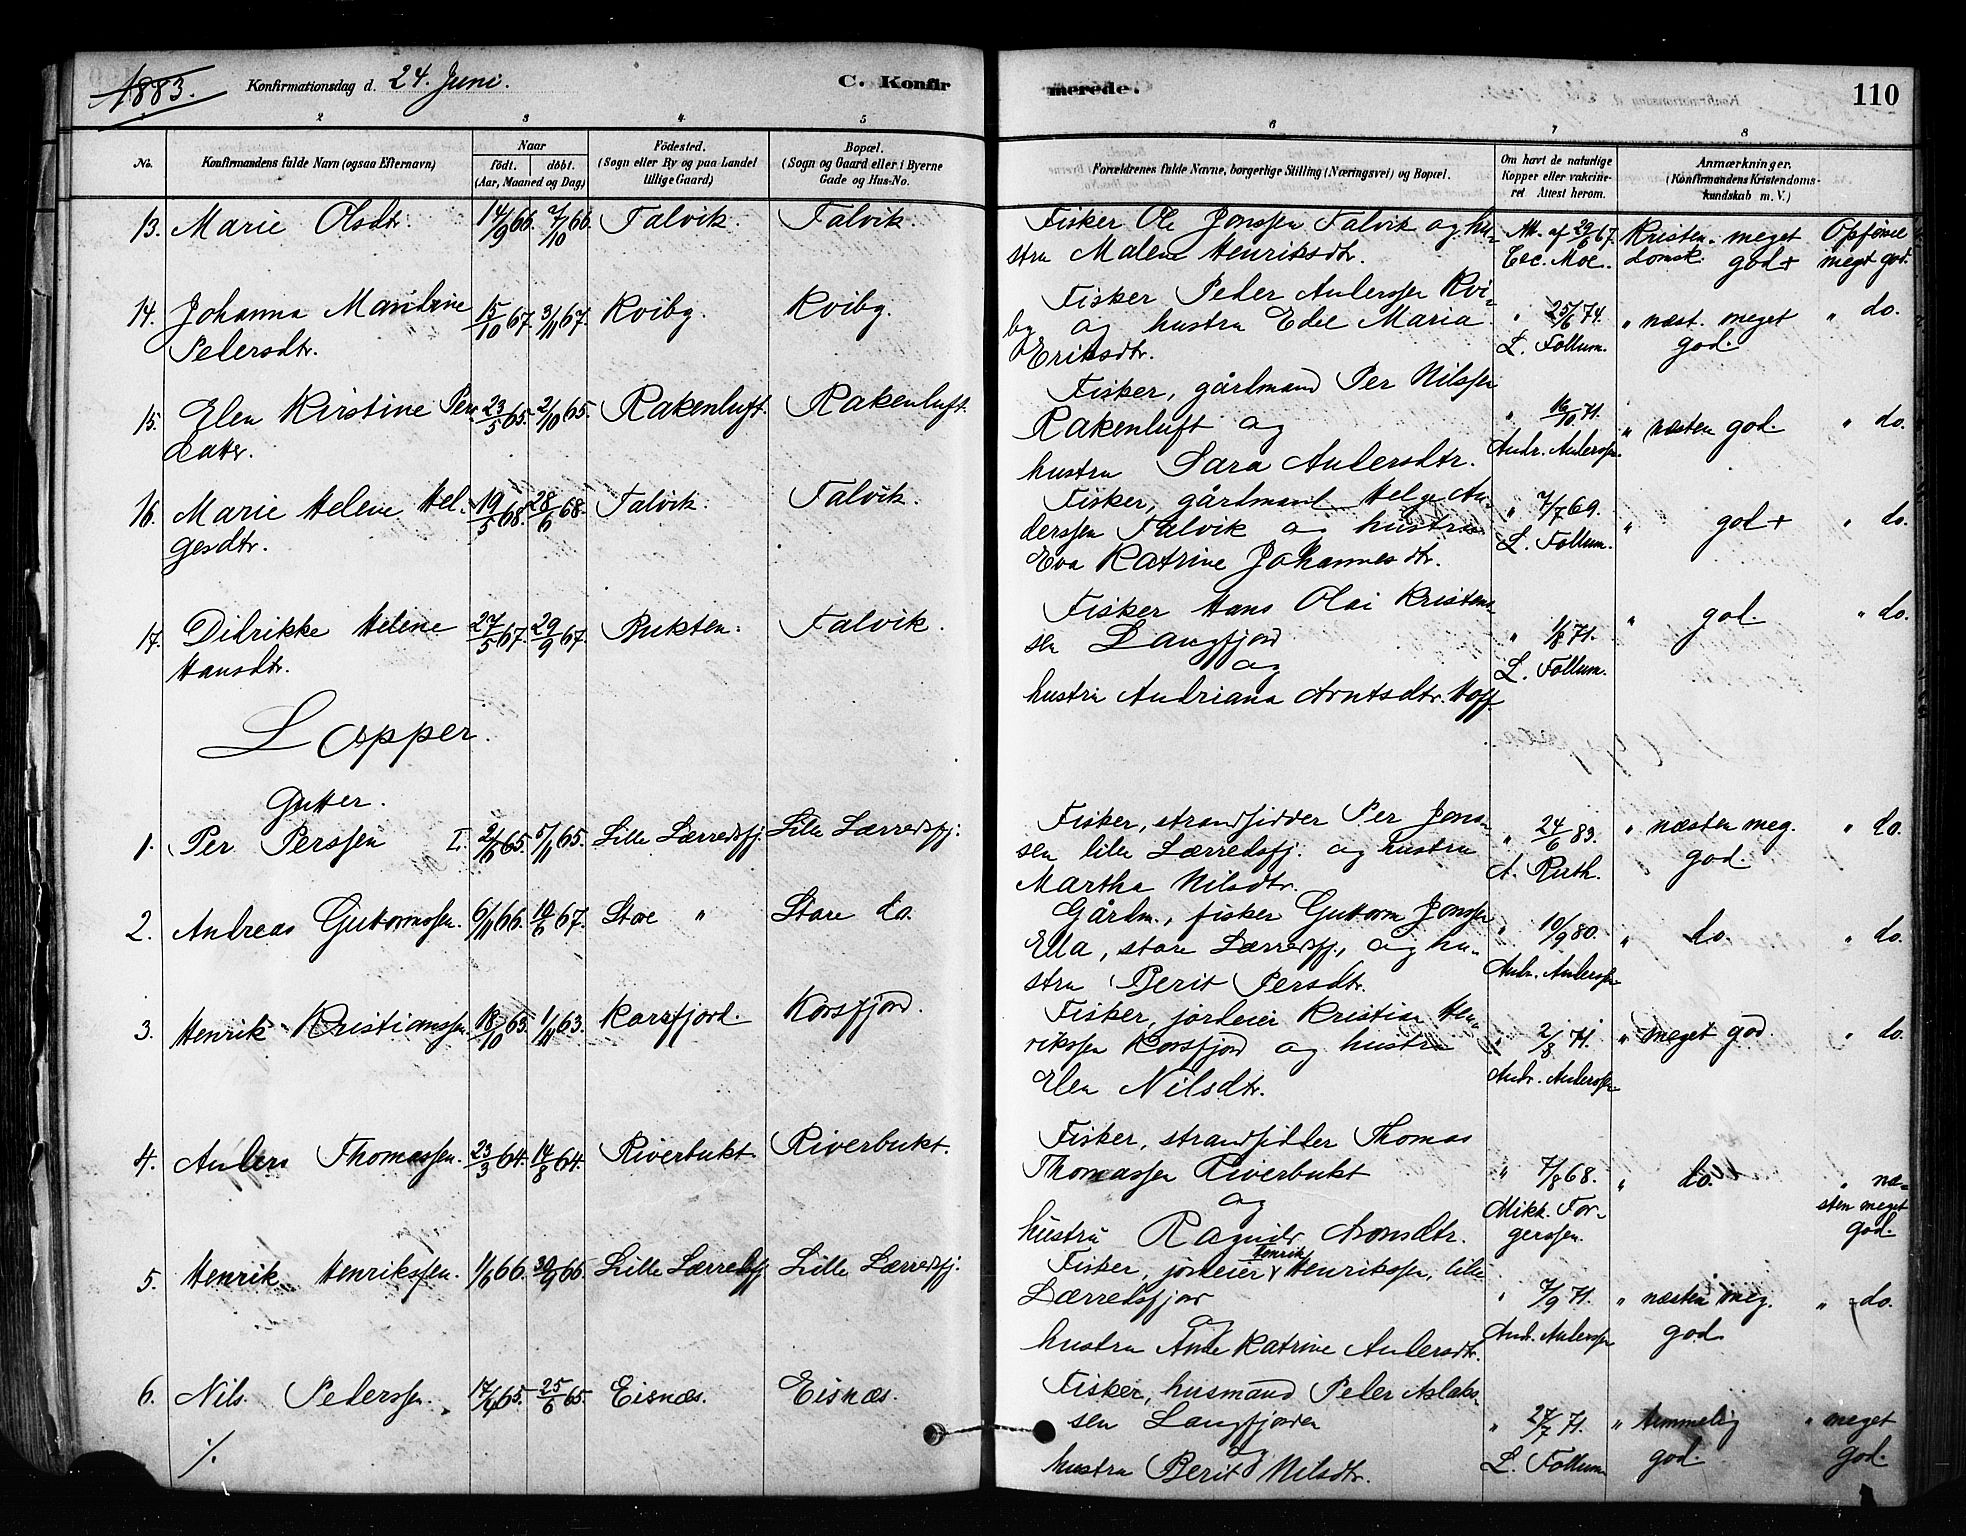 1883. Konfirmationsdag d. 24. Juni. C. Konfirmerede. 110
2 3 4 5 6 7 8
No. Konfirmandens fulde Navn (ogsaa Efternavn)
Naar
født. døbt.
(Aar, Maaned og Dag)
Fødested.
(Sogn eller By og paa Landet
tillige Gaard)
Bopæl.
(Sogn og Gaard eller i Byerne
Gade og Hus-No.
Forældrenes fulde Navne, borgerlige Stilling (Næringsvei) og Bopæl.
Om havt de naturlige
Kopper eller vakcine-
ret Attest herom.
Anmærkninger.
(Konfirmandens Kristendoms-
kundskab m. V.)
13. Marie Olsdtr. 14/9 66. 7/10 66. Talvik. Talvik.
Fisker Ole Jonssen Talvik og hu-
stru Malene Henriksdtr.
Att. af 29/6 67.
Eec. Moe.
Kristen- meget
domsk. god+
Opførsel
meget god.
14. Johanna Mandrine
Pedersdtr.
15/10 67. 3/11 67. Kviby. Kviby.
Fisker Peder Anderssen Kvi-
by og hustru Edel Maria
Eriksdtr.
" 25/6 74.
L. Follum.
" næst. meget
god.
" do.
15. Elen Kirstine Pers
datter.
23/5 65. 2/10 65. Rakenluft. Rakenluft.
Fisker, gårdmand Per Nilssen
Rakenluft og
hustru Sara Andersdtr.
" 16/10 71.
Andr. Anderssen
" næsten god. " do.
16. Marie Helene Hel-
gesdtr.
19/5 68. 28/6 68. Talvik. Talvik.
Fisker, gårdmand Helge An-
derssen Talvik og hustru
Eva Katrine Johannesdtr.
" 7/7 69.
L. Follum.
" god+ " do.
17. Didrikke Helene
Hansdtr.
27/5 67. 29/9 67. Bukten. Talvik.
Fisker Hans Olai Kristens-
sen Langfjord
og
hustru Andriana Arntsdtr. Hoff.
" 1/8 71.
L. Follum.
" god. " do.
Lapper.
Gutter.
1. Per Perssen I. 2/6 65. 5/11 65. Lille Lærredsfj. Lille Lærredsfj.
Fisker, strandsidder Per Jons-
sen lille Lærredsfj. og hustru
Martha Nilsdtr.
" 24/6 83.
A. Rath.
" næsten meg.
god.
" do.
2. Andreas Guttormssen. 6/11 66. 10/6 67. Store " Store do.
Gårdm., fisker Guttorm Jonssen
Ella, store Lærredsfj., og hu-
stru Berit Persdtr.
" 10/9 80.
Andr. Anderssen
" do. " do.
3. Henrik Kristianssen 18/10 63. 1/11 63. Korsfjord. Korsfjord.
Fisker, jordeier Kristian Hen-
rikssen Korsfjord og hustru
Elen Nilsdtr.
" 2/8 71.
Andr. Anderssen
" meget god " do.
4. Anders Thomassen. 23/3 64. 14/8 64. Riverbukt Riverbukt.
Fisker, strandsidder Thomas
Thomassen Riverbukt
og
hustru Ragnild Aronsdtr.
" 7/8 68.
Mikk. For-
gerssen.
" do. " næ-
sten meget
god.
5. Henrik Henrikssen. 1/6 66. 30/9 66. Lille Lærredsfj Lille Lærredsfj.
Fisker, jordeier Henrik Henrikssen, lille
Lærredsfjord
og
hustru Ane Katrine Andersdtr.
" 7/9 71.
Andr. Anderssen
" næsten meg.
god
" do.
6. Nils Pederssen. 17/4 65. 25/6 65. Eisnæs. Eisnæs.
Fisker, husmand Peder Aslaks-
sen Langfjorden
og
hustru Berit Nilsdtr.
" 27/7 71.
L. Follum
" temmelig
god.
" meget
god.
./.